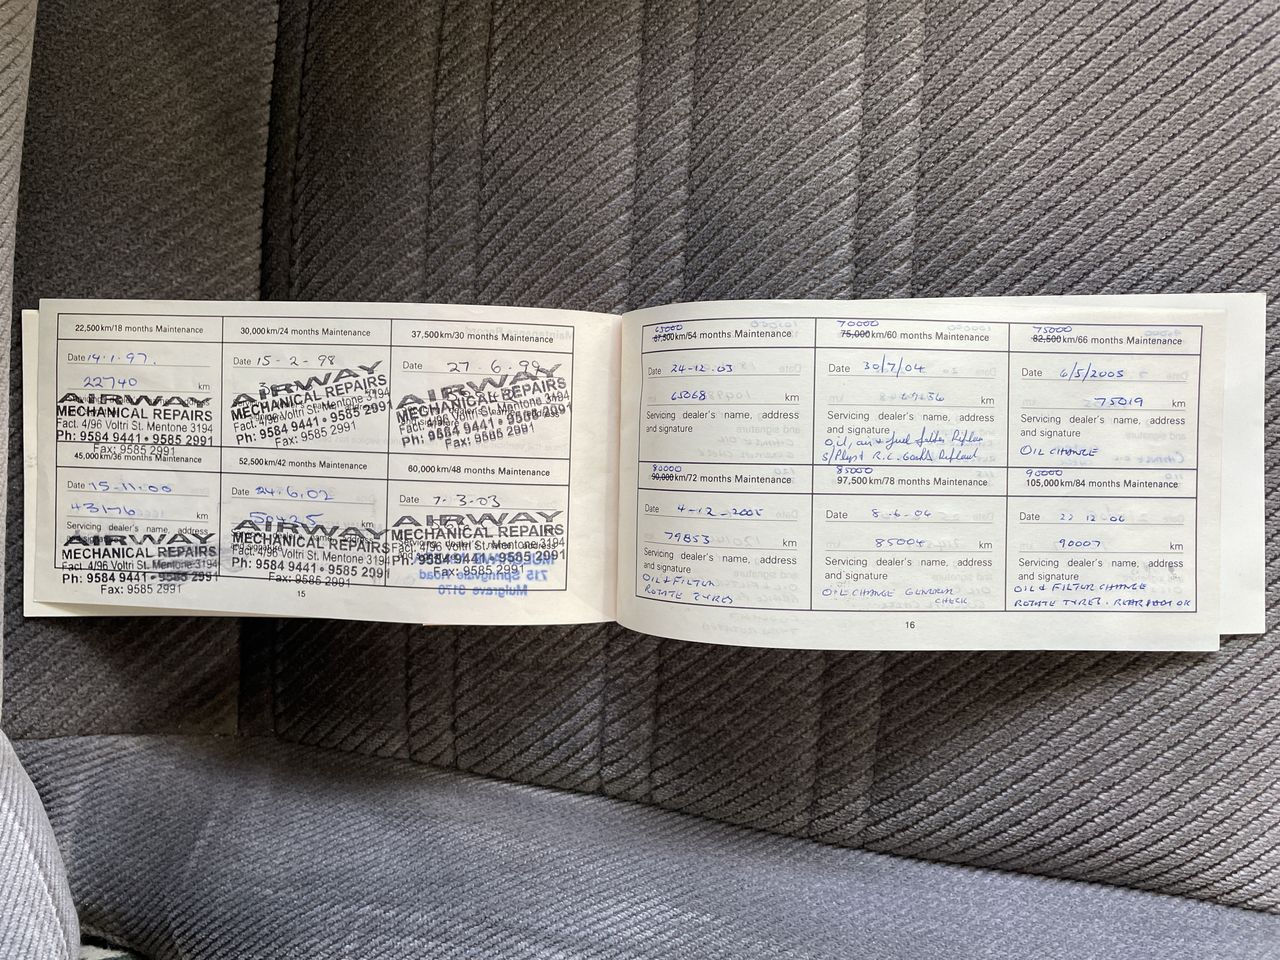 22,500km/18 months Maintenance
Date 14.1.97.
22740 km
AIRWAY
MECHANICAL REPAIRS
Fact. 4/96 Voltri St. Mentone 3194
Ph: 9584 9441 • 9585 2991
Fax: 9585 2991
30,000km/24 months Maintenance
Date 15-2-98
AIRWAY
MECHANICAL REPAIRS
Fact. 4/96 Voltri St. Mentone 3194
Ph: 9584 9441 • 9585 2991
Fax: 9585 2991
37,500km/30 months Maintenance
Date 27.6.99
AIRWAY
MECHANICAL REPAIRS
Fact. 4/96 Voltri St. Mentone 3194
Ph: 9584 9441 • 9585 2991
Fax: 9585 2991
45,000km/36 months Maintenance
Date 15-11-00
43176 km
Servicing dealer's name, address
AIRWAY
MECHANICAL REPAIRS
Fact. 4/96 Voltri St. Mentone 3194
Ph: 9584 9441 • 9585 2991
Fax: 9585 2991
52,500km/42 months Maintenance
Date 24.6.02
50425 km
AIRWAY
MECHANICAL REPAIRS
Fact. 4/96 Voltri St. Mentone 3194
Ph: 9584 9441 • 9585 2991
Fax: 9585 2991
60,000km/48 months Maintenance
Date 7-3-03
AIRWAY
MECHANICAL REPAIRS
Fact. 4/96 Voltri St. Mentone 3194
Ph: 9584 9441 • 9585 2991
Fax: 9585 2991
15
65000
67,500km/54 months Maintenance
Date 24-12-03
65068 km
Servicing dealer's name, address
and signature
70000
75,000km/60 months Maintenance
Date 30/7/04
km
Servicing dealer's name, address
and signature
Oil, air & fuel
75000
82,500km/66 months Maintenance
Date 6/5/2005
75019 km
Servicing dealer's name, address
and signature
OIL CHANGE
80000
90,000km/72 months Maintenance
Date 4-12-2005
79853 km
Servicing dealer's name, address
and signature
OIL & FILTER
ROTATE TYRES
85000
97,500km/78 months Maintenance
Date 8-6-06
85004 km
Servicing dealer's name, address
and signature
OIL CHANGE GENERAL
CHECK
90000
105,000km/84 months Maintenance
Date 22 12 06
90007 km
Servicing dealer's name, address
and signature
OIL & FILTER CHANGE
ROTATE TYRES. REAR
16